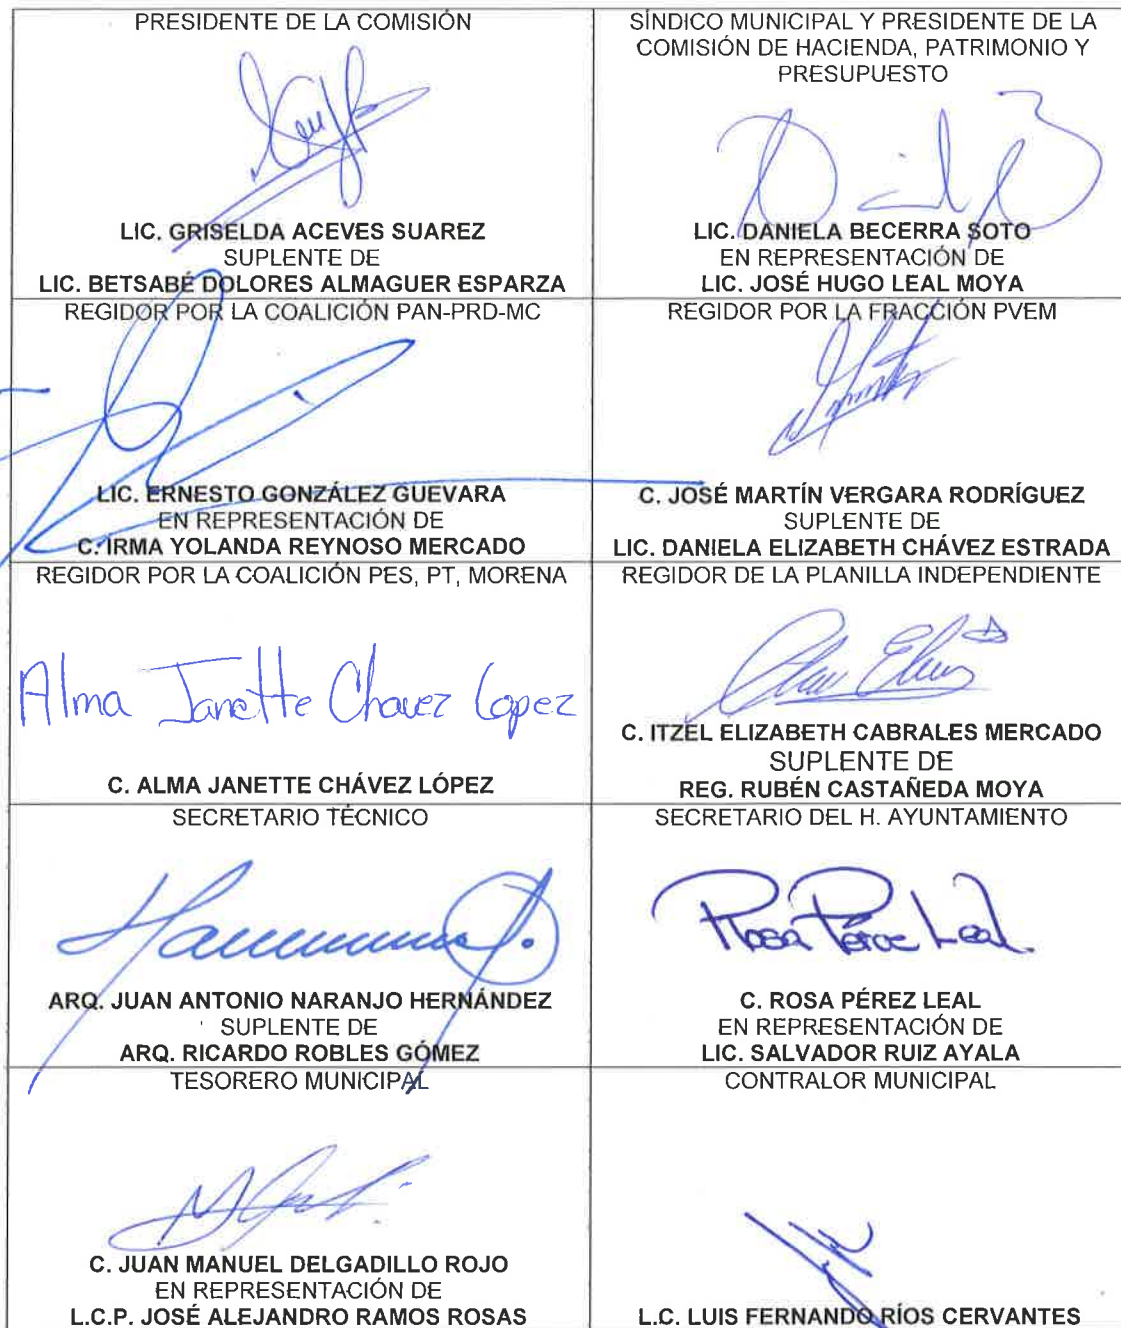 PRESIDENTE DE LA COMISIÓN
LIC. GRISELDA ACEVES SUAREZ
SUPLENTE DE
LIC. BETSABÉ DOLORES ALMAGUER ESPARZA
SÍNDICO MUNICIPAL Y PRESIDENTE DE LA
COMISIÓN DE HACIENDA, PATRIMONIO Y
PRESUPUESTO
LIC. DANIELA BECERRA SOTO
EN REPRESENTACIÓN DE
LIC. JOSÉ HUGO LEAL MOYA
REGIDOR POR LA COALICIÓN PAN-PRD-MC
LIC. ERNESTO GONZÁLEZ GUEVARA
EN REPRESENTACIÓN DE
C. IRMA YOLANDA REYNOSO MERCADO
REGIDOR POR LA FRACCIÓN PVEM
C. JOSÉ MARTÍN VERGARA RODRÍGUEZ
SUPLENTE DE
LIC. DANIELA ELIZABETH CHÁVEZ ESTRADA
REGIDOR POR LA COALICIÓN PES, PT, MORENA
Alma Janette Chavez Lopez
C. ALMA JANETTE CHÁVEZ LÓPEZ
REGIDOR DE LA PLANILLA INDEPENDIENTE
C. ITZEL ELIZABETH CABRALES MERCADO
SUPLENTE DE
REG. RUBÉN CASTAÑEDA MOYA
SECRETARIO TÉCNICO
ARQ. JUAN ANTONIO NARANJO HERNÁNDEZ
SUPLENTE DE
ARQ. RICARDO ROBLES GÓMEZ
SECRETARIO DEL H. AYUNTAMIENTO
Rosa Pérez Leal
C. ROSA PÉREZ LEAL
EN REPRESENTACIÓN DE
LIC. SALVADOR RUIZ AYALA
TESORERO MUNICIPAL
C. JUAN MANUEL DELGADILLO ROJO
EN REPRESENTACIÓN DE
L.C.P. JOSÉ ALEJANDRO RAMOS ROSAS
CONTRALOR MUNICIPAL
L.C. LUIS FERNANDO RÍOS CERVANTES